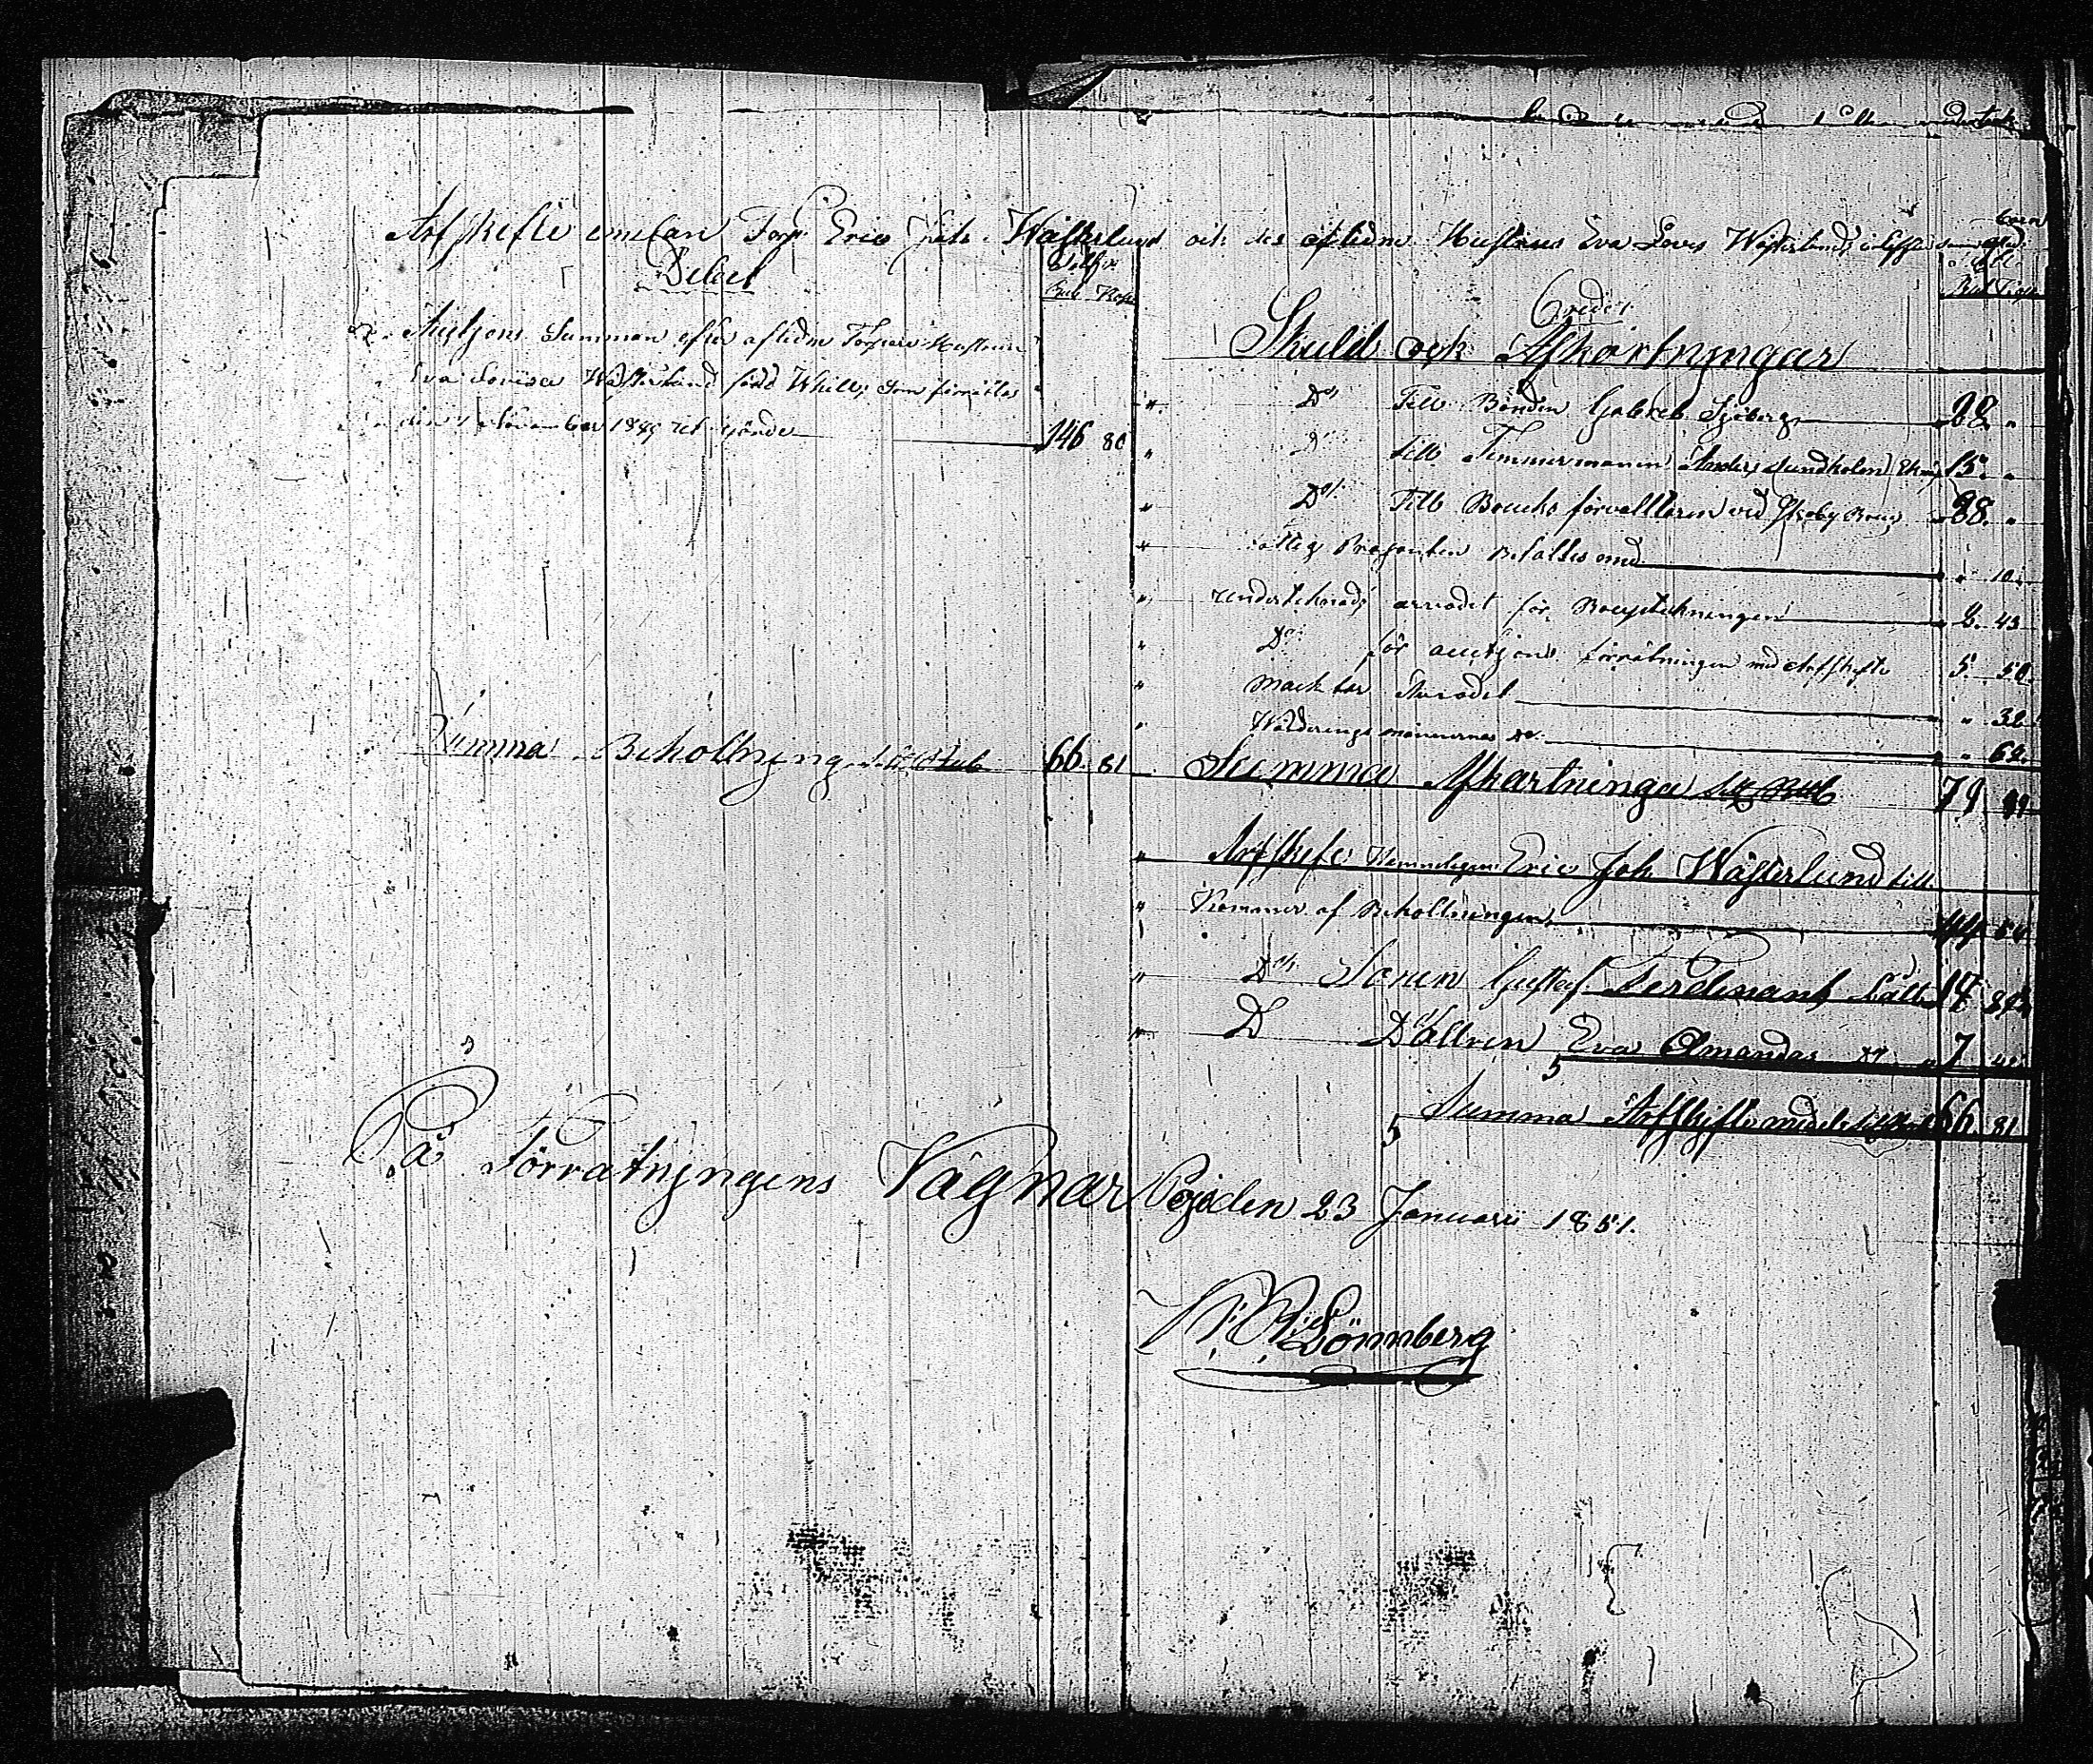 Arfskifte emelan Torp. Eric Joh. Wästerlund och des aflidne Hustrus Eva Lovis Wästerlunds
Debet
Silfver
Rub Kop
Auktjons Summan efter aflidne Torpare Hustrun
Eva Lovisa Wästerlund född Whill, som förrättas
den November 1849 utgjorde 146 80
Summa Behollnjng Silf Rub 66 81
Credit
Skuld ock Afkortnjngar
Do Till Bonden Gabriel Sjöberg 28 "
Do till Timmermannen Anders Sundholm 15 "
Do Till Brucks förvalltaren vid Skogby Bruk 28 "
Fattig Prosenten Betalles med " 10
underteknads arvodet för Bouptekningen 2 43
Do för auktjons förrätningen med Arfskifte 5 50
Macktar Arvodet " 32
Wälderings männernas do " 62
Summa Afkartninga Silf Rub 79 99
Arfskifte Eric Joh Wästerlund till
Kommer af Behollningen 44 54
Do Sonen Gustaf Ferdinant 14 84
D Dåttren Eva Amanda do 7 42
Summa Arfskifte 66 81
På Förratnjngens Vägnar Pojo den 23 Januarii 1851.
Lönnberg